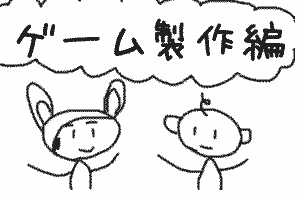 ゲーム製作編